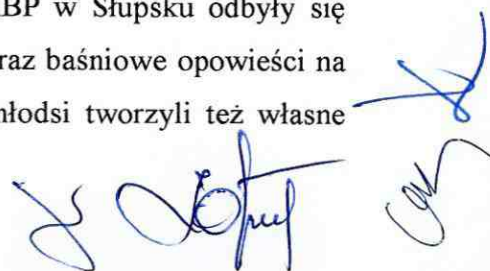 BP w Słupsku odbyły się
raz baśniowe opowieści na
młodsi tworzyli też własne